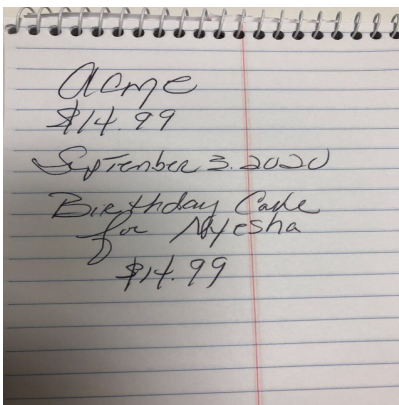 Acme
$14.99
September 3. 2020
Birthday Cake
for Nyesha
$14.99